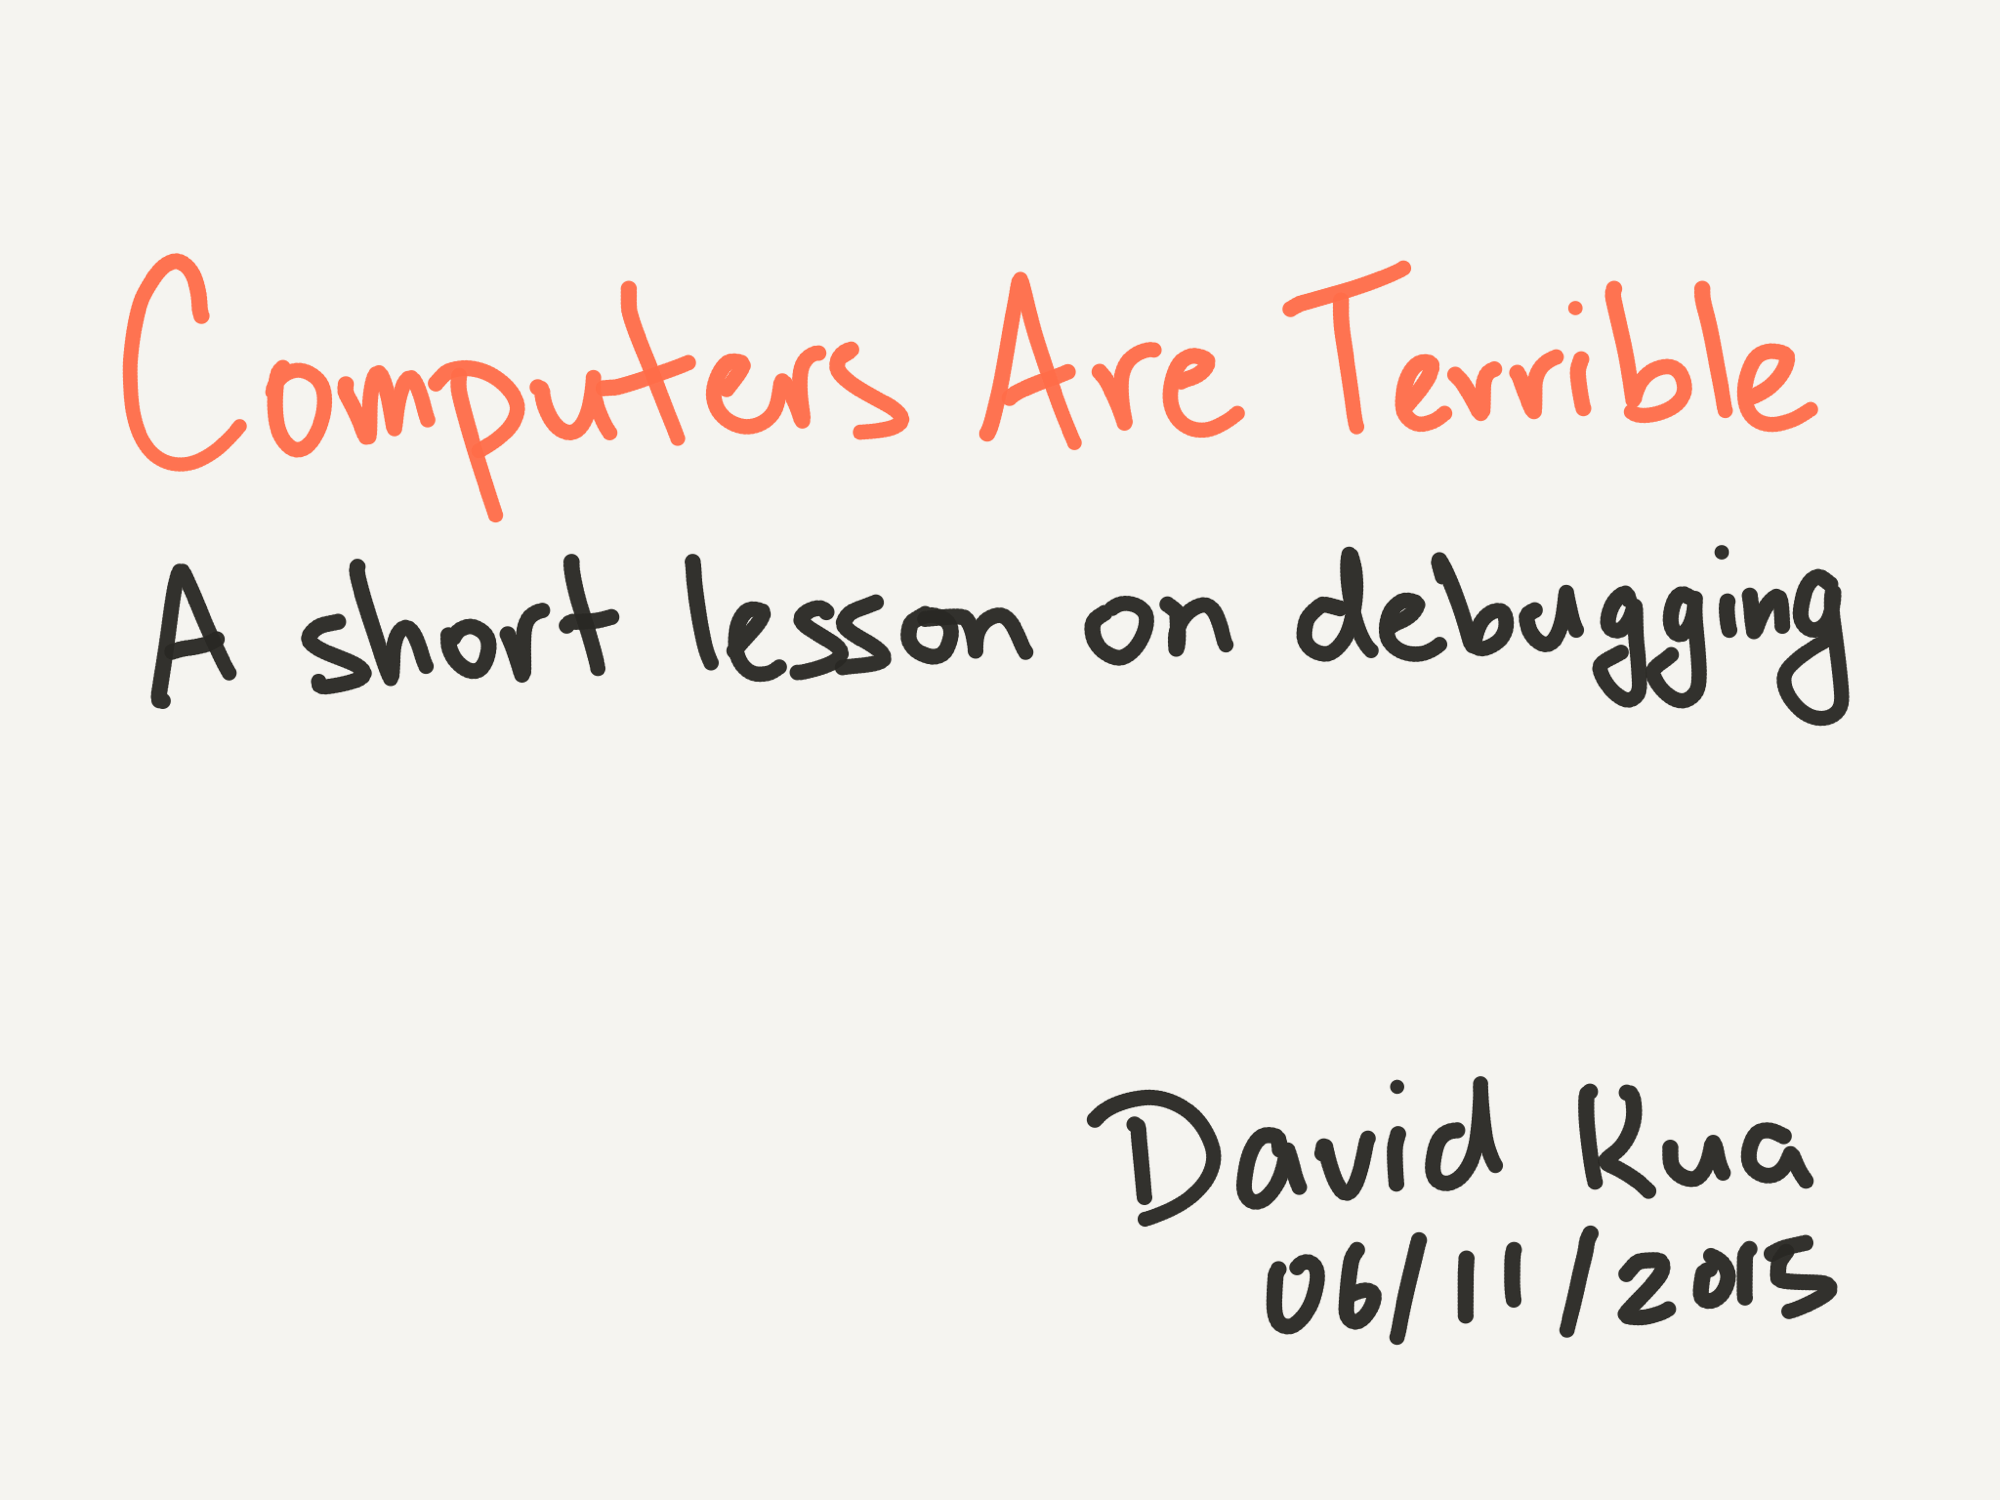 Computers Are Terrible
A short lesson on debugging
David Kua
06/11/2015